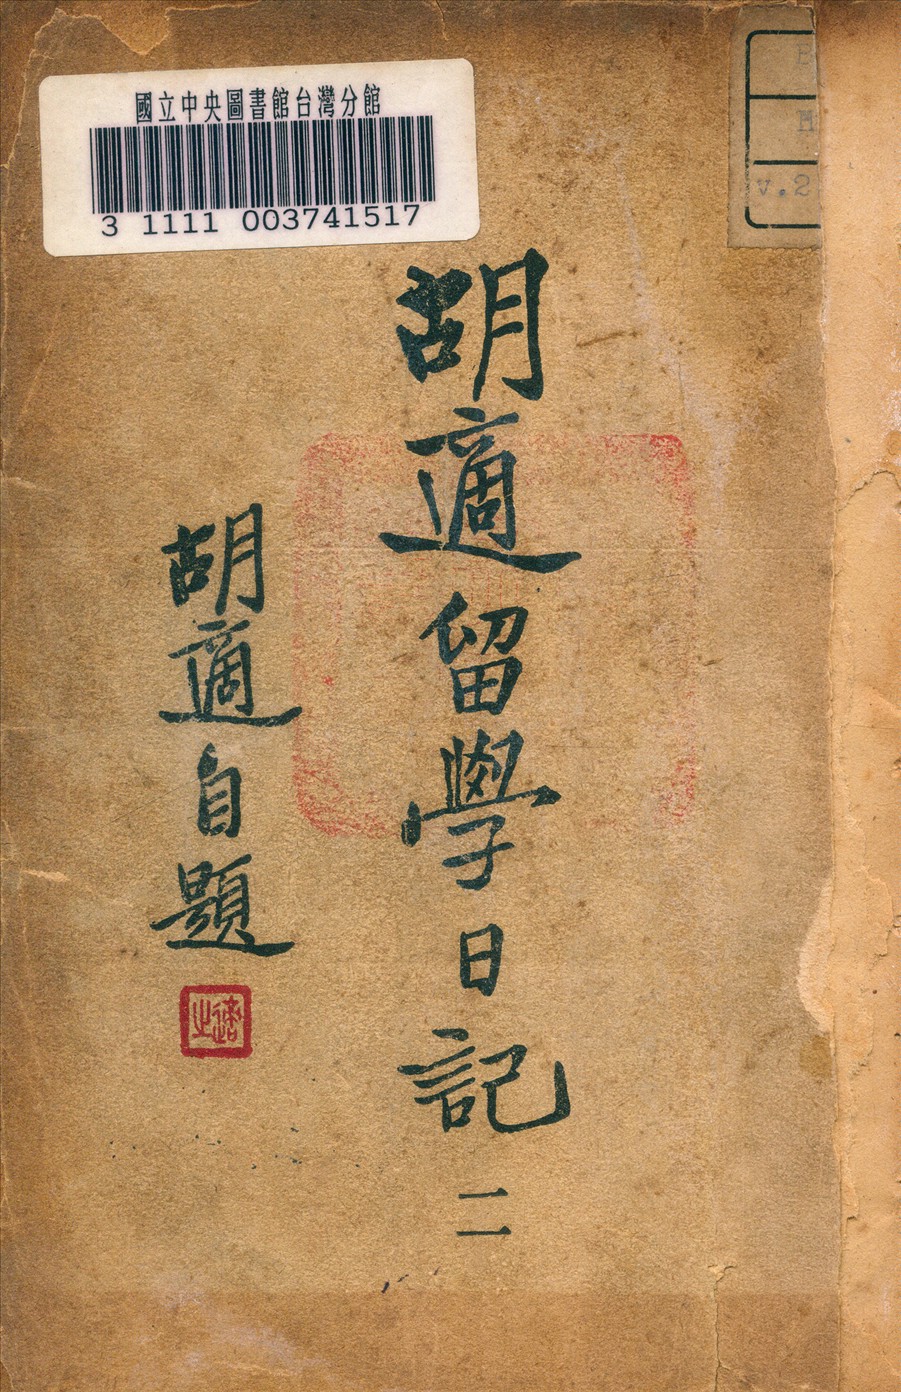 國立中央圖書館台灣分館
3 1111 003741517
v.2
胡適留學日記
二
胡適自題
適之